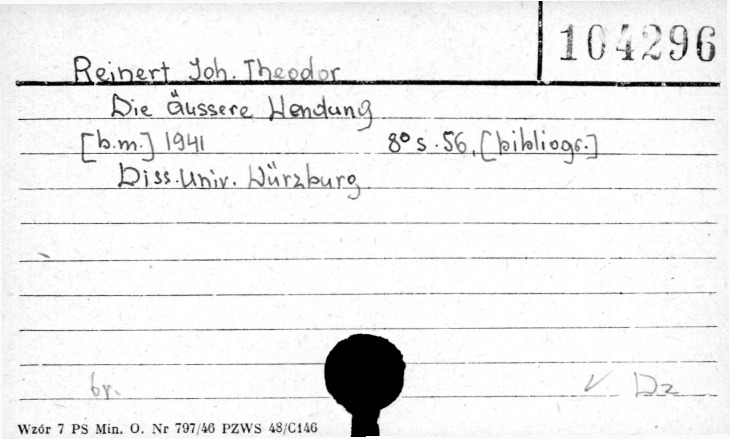 104296
Reinert Joh. Theodor
Die äussere Wendung
[b.m.] 1941 8° s. 56, [bibliogr.]
Diss. Univ. Würzburg
br. √ Dz
Wzór 7 PS Min. O. Nr 797/46 PZWS 48/C146